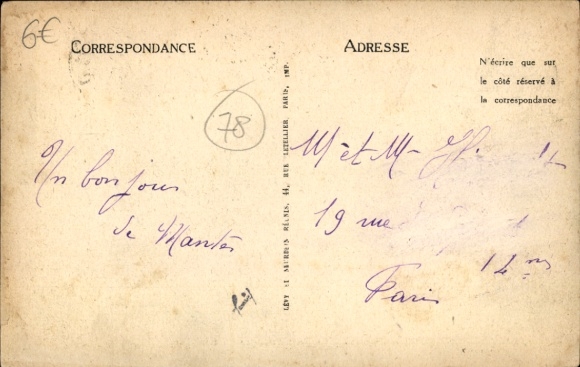 6€
CORRESPONDANCE
ADRESSE
N'écrire que sur
le côté réservé à
la correspondance
78
Un bonjour
de Mantes
LÉVY ET NEURDEIN RÉUNIS, 44, RUE LETELLIER, PARIS, IMP.
M et M
19 rue
14
Paris